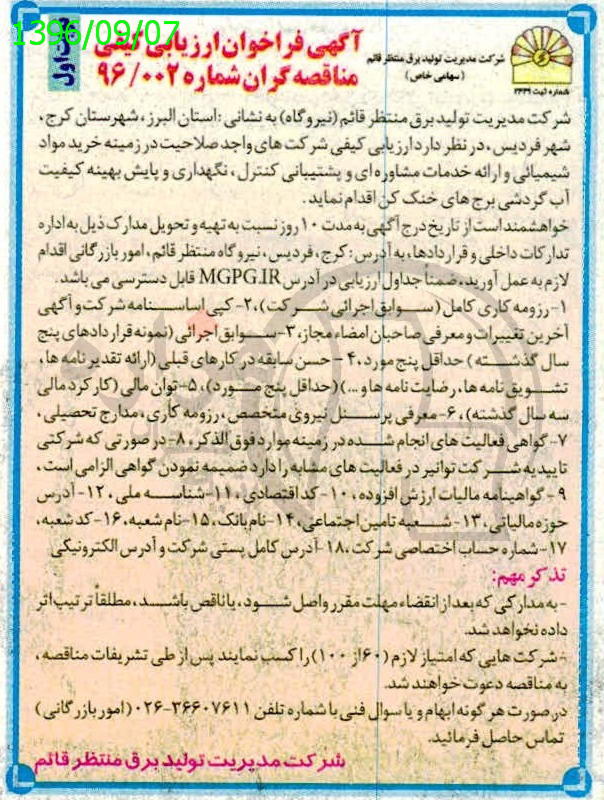 1396/09/07
نوبت اول
آگهی فراخوان ارزیابی کیفی
مناقصه گران شماره ۹۶/۰۰۲
شرکت مدیریت تولید برق منتظر قائم
(سهامی خاص)
شماره ثبت ۲۳۳۹
شرکت مدیریت تولید برق منتظر قائم (نیروگاه) به نشانی: استان البرز، شهرستان کرج،
شهر فردیس، در نظر دارد ارزیابی کیفی شرکت های واجد صلاحیت در زمینه خرید مواد
شیمیائی و ارائه خدمات مشاوره ای و پشتیبانی کنترل، نگهداری و پایش بهینه کیفیت
آب گردشی برج های خنک کن اقدام نماید.
خواهشمند است از تاریخ درج آگهی به مدت ۱۰ روز نسبت به تهیه و تحویل مدارک ذیل به اداره
تدارکات داخلی و قراردادها، به آدرس: کرج، فردیس، نیروگاه منتظر قائم، امور بازرگانی اقدام
لازم به عمل آورید. ضمناً جداول ارزیابی در آدرس MGPG.IR قابل دسترسی می باشد.
۱- رزومه کاری کامل (سوابق اجرائی شرکت)، ۲- کپی اساسنامه شرکت و آگهی
آخرین تغییرات و معرفی صاحبان امضاء مجاز، ۳- سوابق اجرائی (نمونه قراردادهای پنج
سال گذشته) حداقل پنج مورد، ۴- حسن سابقه در کارهای قبلی (ارائه تقدیرنامه ها،
تشویق نامه ها، رضایت نامه ها و ...) (حداقل پنج مورد)، ۵- توان مالی (کارکرد مالی
سه سال گذشته)، ۶- معرفی پرسنل نیروی متخصص، رزومه کاری، مدارج تحصیلی،
۷- گواهی فعالیت های انجام شده در زمینه موارد فوق الذکر، ۸- در صورتی که شرکتی
تاییدیه شرکت توانیر در فعالیت های مشابه را دارد ضمیمه نمودن گواهی الزامی است،
۹- گواهینامه مالیات ارزش افزوده، ۱۰- کد اقتصادی، ۱۱- شناسه ملی، ۱۲- آدرس
حوزه مالیاتی، ۱۳- شعبه تامین اجتماعی، ۱۴- نام بانک، ۱۵- نام شعبه، ۱۶- کد شعبه،
۱۷- شماره حساب اختصاصی شرکت، ۱۸- آدرس کامل پستی شرکت و آدرس الکترونیکی
تذکر مهم:
- به مدارکی که بعد از انقضاء مهلت مقرر واصل شود، یا ناقص باشد، مطلقاً ترتیب اثر
داده نخواهد شد.
- شرکت هایی که امتیاز لازم (۶۰ از ۱۰۰) را کسب نمایند پس از طی تشریفات مناقصه،
به مناقصه دعوت خواهند شد.
در صورت هر گونه ابهام و یا سوال فنی با شماره تلفن ۳۶۶۰۷۶۱۱-۰۲۶ (امور بازرگانی)
تماس حاصل فرمائید.
شرکت مدیریت تولید برق منتظر قائم